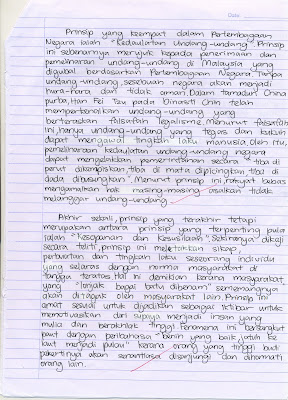 Date
Prinsip yang keempat dalam Perlembagaan
Negara ialah "Kedaulatan Undang-undang". Prinsip
ini sebenarnya merujuk kepada penerimaan dan
pematuhan undang-undang di Malaysia yang
digubal berdasarkan Perlembagaan Negara. Tanpa
undang-undang, sesebuah negara akan menjadi
huru-hara dan tidak aman. Dalam tamadun China
purba, Han Fei Tzu pada Dinasti Chin telah
memperkenalkan undang-undang yang
berteraskan falsafah legalisme. Menurut falsafah
ini, hanya undang-undang yang tegas dan kukuh
dapat mengawal tingkah laku manusia. Oleh itu,
pemeliharaan kedaulatan undang-undang negara
dapat mengelakkan pemerintahan secara "tiba di
perut dikempiskan, tiba di mata dipicingkan, tiba di
dada dibusungkan". Menurut prinsip ini, rakyat bebas
mengamalkan hak masing-masing asalkan tidak
melanggar undang-undang.
Akhir sekali, prinsip yang terakhir tetapi
merupakan antara prinsip yang terpenting pula
ialah "Kesopanan dan Kesusilaan". Sekiranya dikaji
secara teliti, prinsip ini meletakkan sikap
pertuturan dan tingkah laku seseorang individu
yang selaras dengan norma masyarakat di
tangga teratas. Hal ini demikian kerana masyarakat
yang "lonjak bagai batu dibenam" sememangnya
akan ditapok oleh masyarakat lain. Prinsip ini
amat sesuai untuk dijadikan sebagai iktibar untuk
memotivasikan diri supaya menjadi insan yang
mulia dan berakhlak tinggi. Fenomena ini bersangkut
paut dengan peribahasa "benih yang baik, jatuh ke
laut menjadi pulau" kerana orang yang tinggi budi
pekertinya akan senantiasa disanjungi dan dihormati
orang lain.